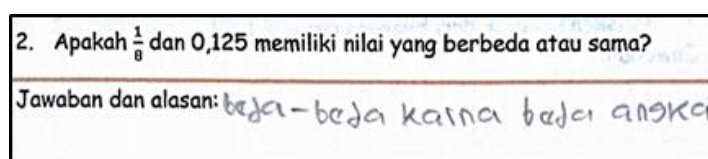 2. Apakah 1/8 dan 0,125 memiliki nilai yang berbeda atau sama?
Jawaban dan alasan: beda-beda karna beda angka